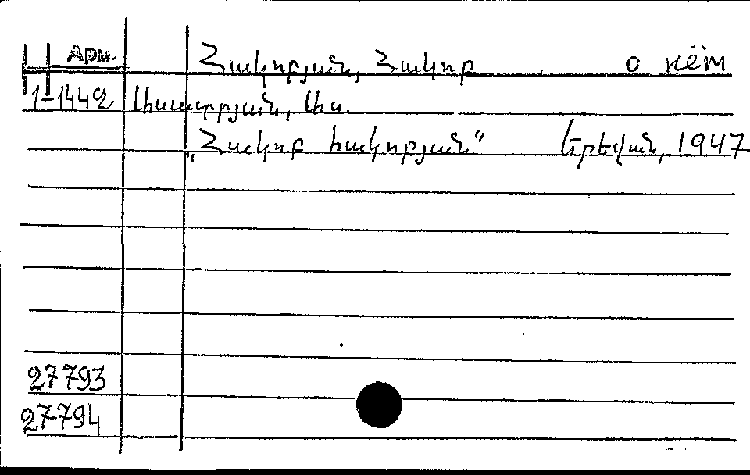 Арм. Հակոբյան, Հակոբ о нём
1-1442
„Հակոբ Հակոբյան“ Երեվան, 1947
27793
27794